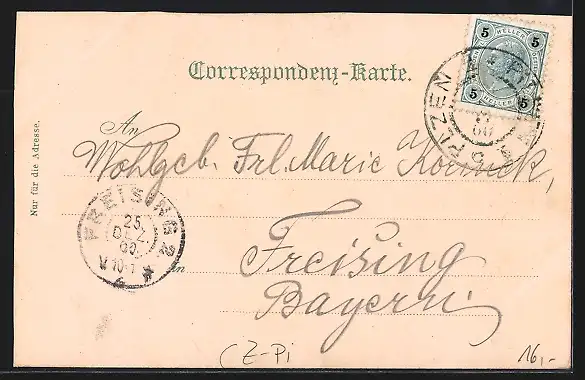 Correspondenz-Karte.
5 HELLER 5
5 HELLER 5
KRIZEN
60
Nur für die Adresse.
An
Wohlgeb. Frl. Marie
FREISING 2
25
DEZ.
00.
V.10-1
in
Freising
Bayern
(Z-Pi
16,-